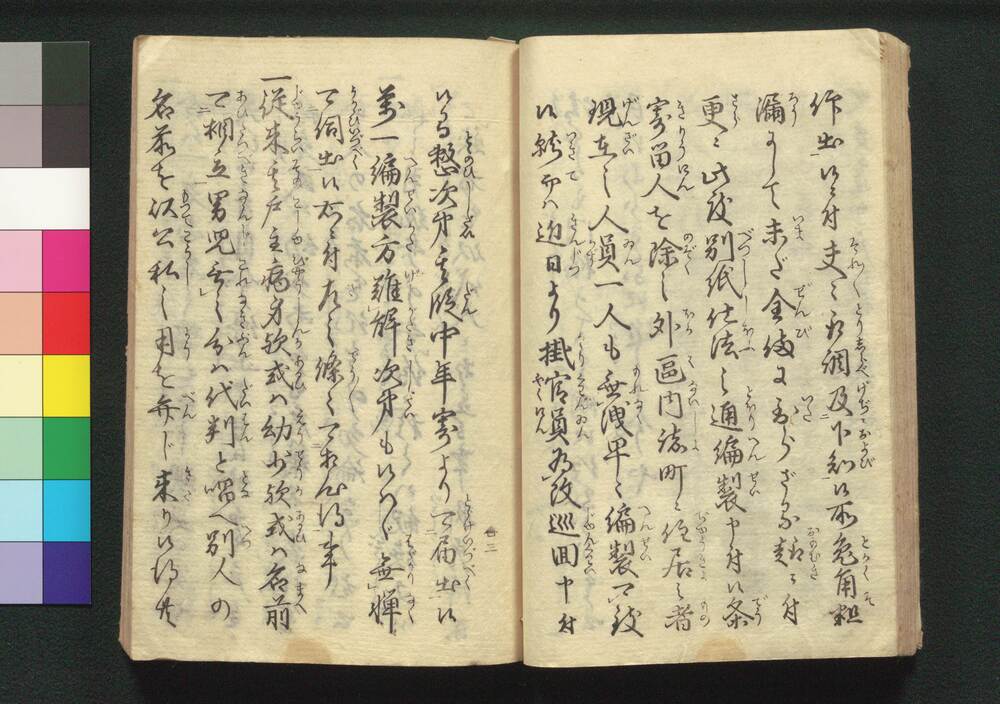 作出候ニ付夫々取調及下知候所兎角粗
漏にして未だ全備に至らざる趣ニ付
更ニ此度別紙仕法之通編製申付候条
寄留人を除之外区内諸町ニ住居之者
現在之人員一人も無洩早々編製可致
候就而ハ近日より掛官員為改巡回申付
候間整次第其段中年寄より可届出候
万一編製方難解次第も候ハヾ無憚
可伺出候右ニ付左之條々可相心得事
一従来其戸主病身歟或ハ幼少歟或ハ名前
可相立男児無之分ハ代判と唱へ別人の
名前を以公私之用を弁じ来り候得共